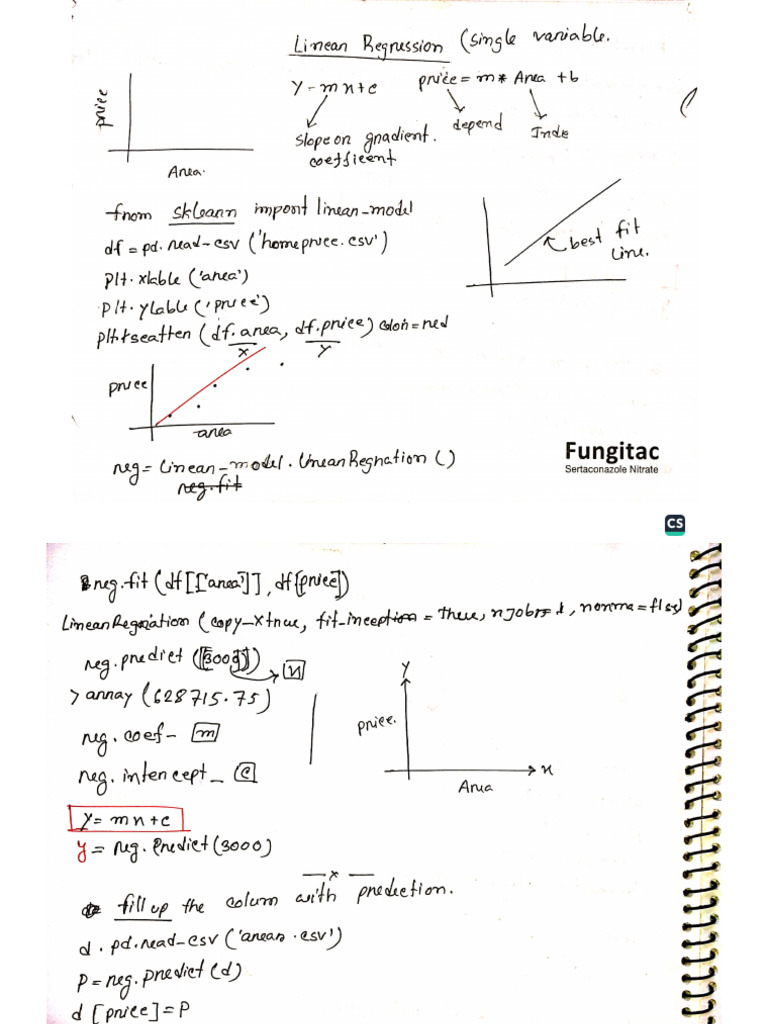 Linear Regression (single variable.
y = mx+c
price = m * Area + b
price
Area.
slope or gradient.
coefficient
depend
Inde
from sklearn import linear_model
df = pd.read_csv ('homeprice.csv')
plt.xlable ('area')
plt.ylable ('price')
plt.scatter (df.area, df.price) color = red
x
y
best fit
line.
price
area
reg = linear_model. LinearRegration ()
reg.fit
Fungitac
Sertaconazole Nitrate
CS
reg.fit (df[['area']], df[price])
LinearRegration (copy_X true, fit_inception = there,
reg.predict ([[3000]])
x
> array (628715.75)
reg. coef_ m
reg. intercept_ c
y
price.
x
Area
y = mx+c
y = reg. predict (3000)
x
fill up the column with prediction.
d . pd.read_csv ('areas.csv')
p = reg. predict (d)
d [price] = p